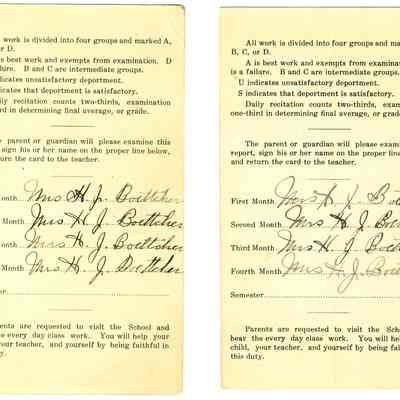 work is divided into four groups and marked A,
or D.
is best work and exempts from examination. D
B and C are intermediate groups.
indicates unsatisfactory deportment.
indicates that deportment is satisfactory.
Daily recitation counts two-thirds, examination
in determining final average, or grade.
parent or guardian will please examine this
sign his or her name on the proper line below,
return the card to the teacher.
Mrs H. J. Boettcher
Month Mrs H. J. Boettcher
Mrs H. J. Boettcher
Month Mrs H. J. Boettcher
Parents are requested to visit the School and
the every day class work. You will help your
your teacher, and yourself by being faithful in
All work is divided into four groups and
B, C, or D.
A is best work and exempts from examination.
is a failure. B and C are intermediate groups.
U indicates unsatisfactory deportment.
S indicates that deportment is satisfactory.
Daily recitation counts two-thirds,
one-third in determining final average, or grade.
The parent or guardian will please examine
report, sign his or her name on the proper line
and return the card to the teacher.
First Month Mrs H. J.
Second Month Mrs H. J.
Third Month Mrs H. J.
Fourth Month Mrs H. J.
Semester
Parents are requested to visit the
hear the every day class work. You will help
child, your teacher, and yourself by being
this duty.